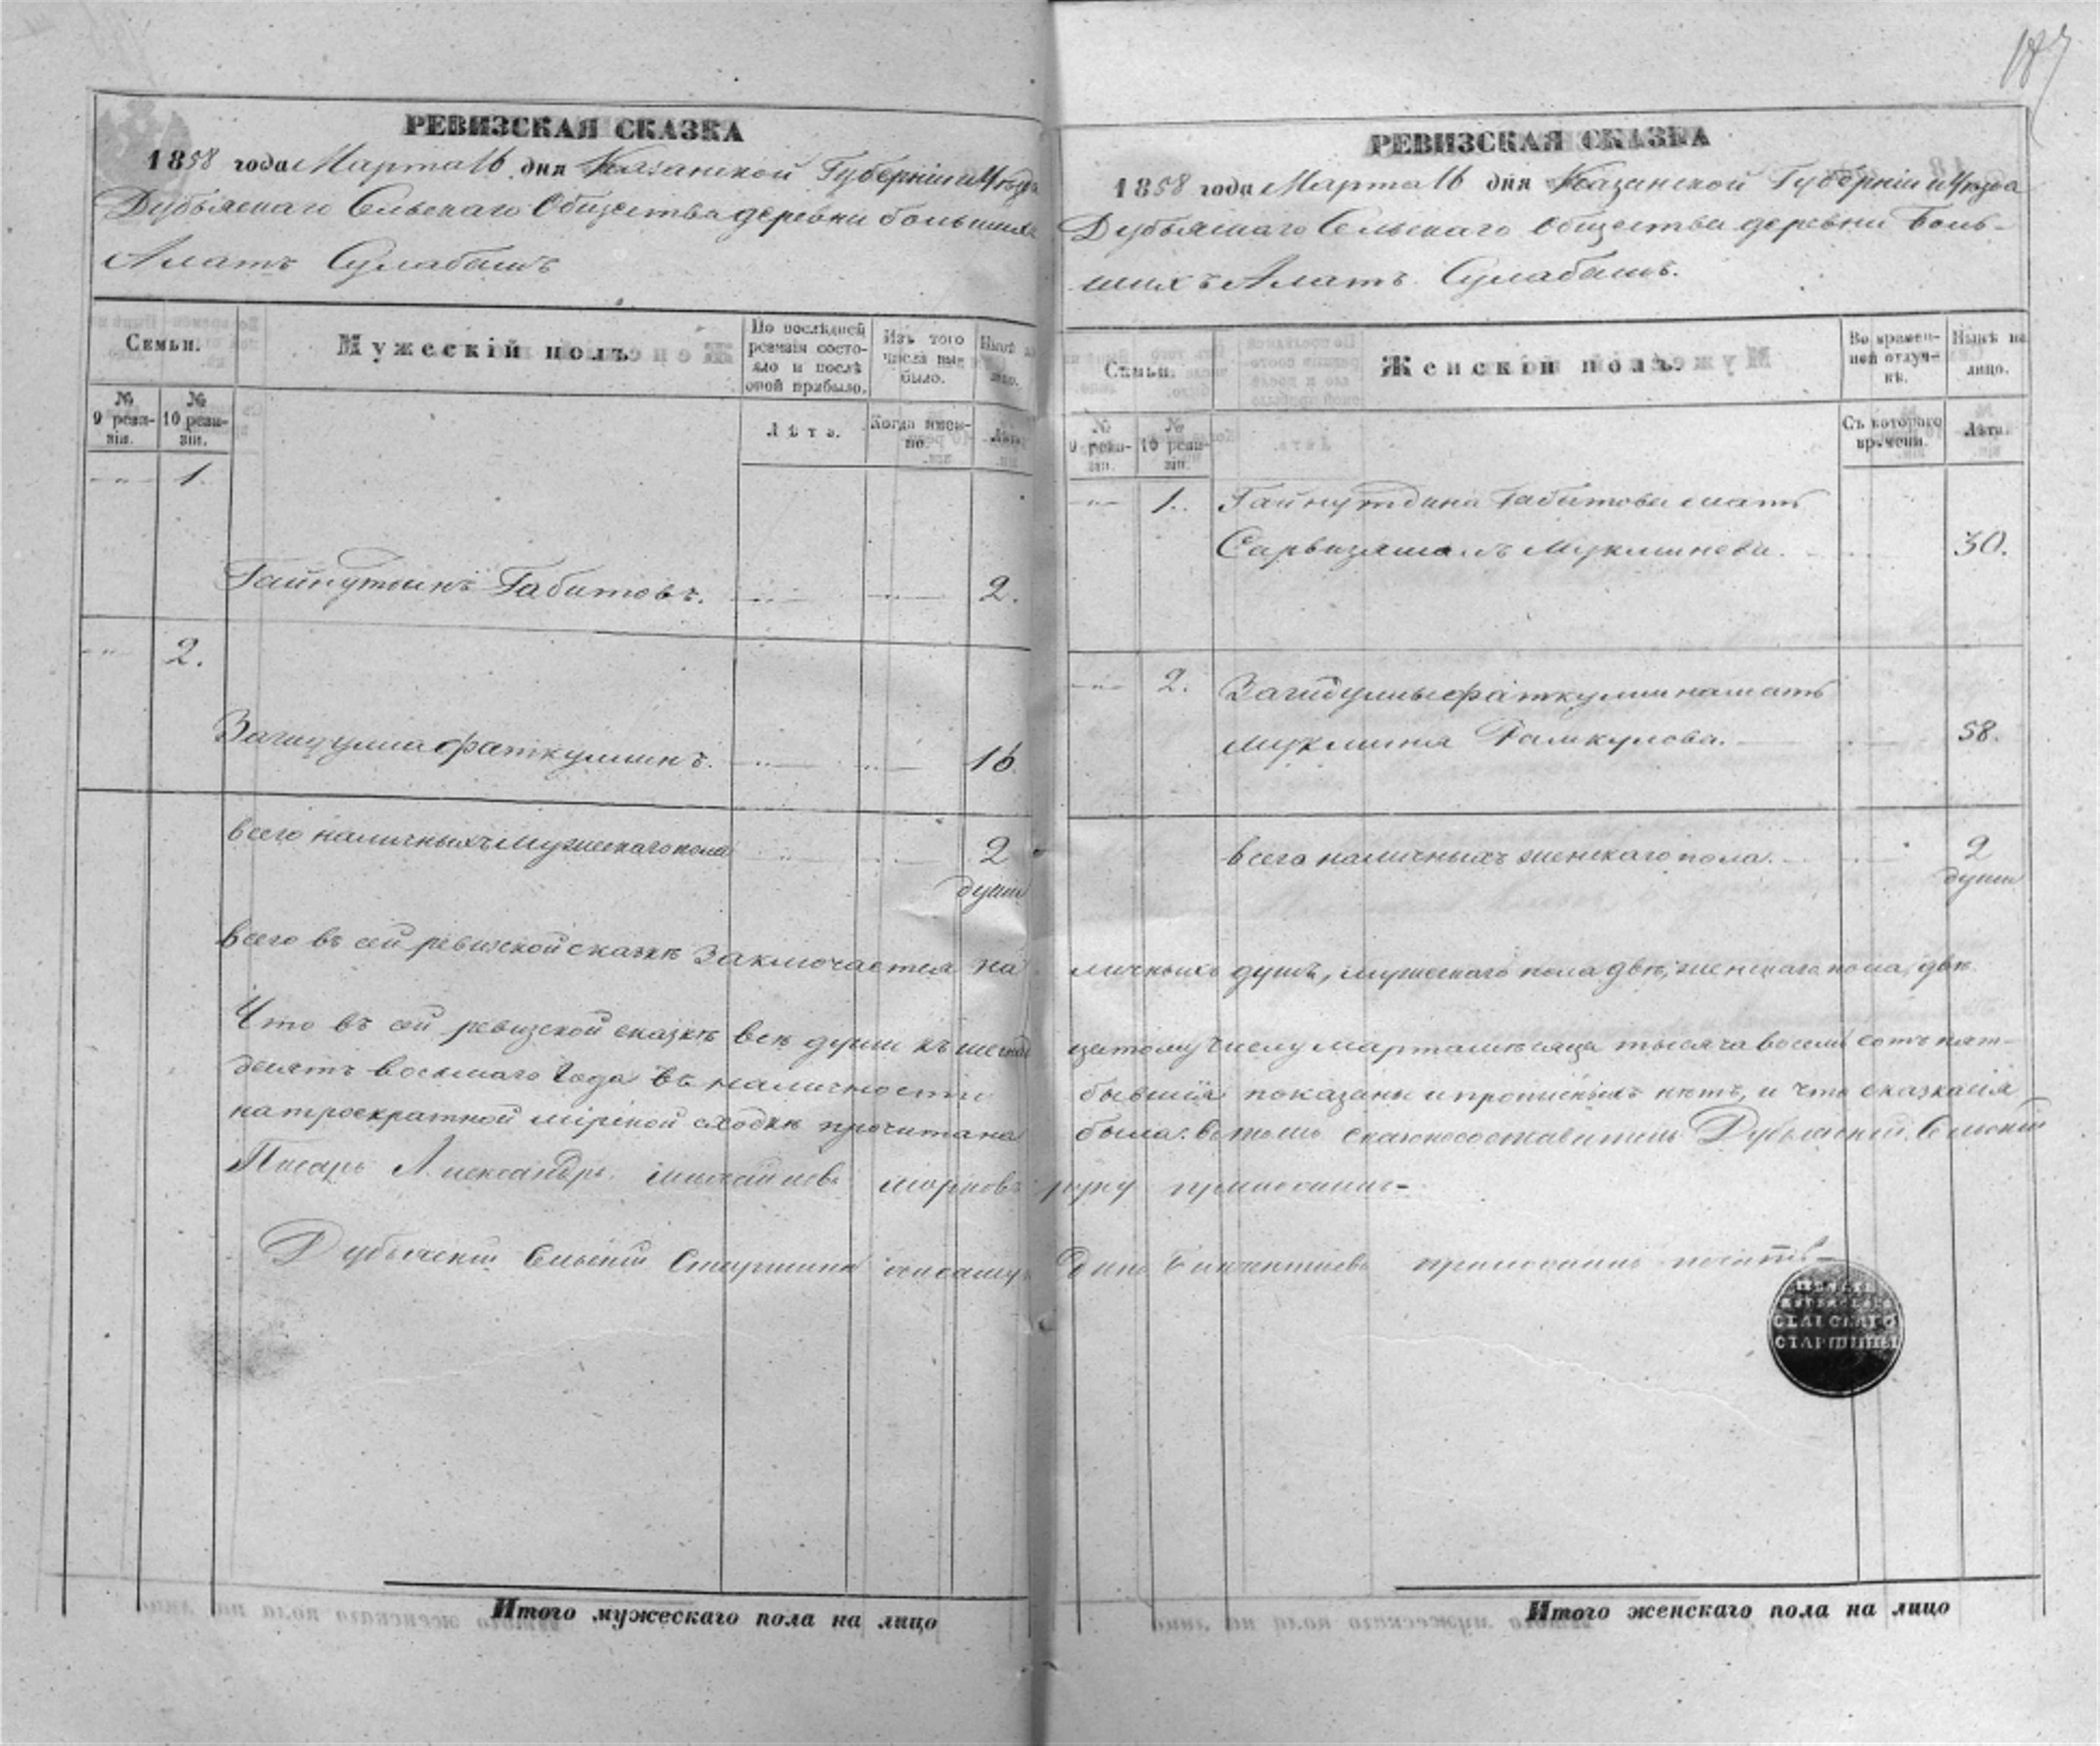 187
РЕВИЗСКАЯ СКАЗКА
1858 года Марта 16 дня Казанской Губерніи и Уѣзда
Дубъяскаго Сельскаго Общества деревни большихъ
Алатъ Сулабашъ
Семьи.
Мужескій полъ
По послѣдней ревизіи состояло и послѣ оной прибыло.
Изъ того числа выбыло.
Нынѣ на лицо.
№ 9 ревизіи.
№ 10 ревизіи.
Лѣта.
Когда именно.
Лѣта.
1.
Гайнутдинъ Габитовъ. 2.
2.
Загидулла Фаткуллинъ. 16
всего наличныхъ мужескаго пола 2
души
всего въ сей ревизской сказкѣ заключается на
Что въ сей ревизской сказкѣ всѣ души къ шестнад
десятъ восьмаго Года въ наличности
на троекратной мірской сходкѣ прочитана
Писарь Александръ
Дубъяскій Сельскій Старшина
Итого мужескаго пола на лицо
РЕВИЗСКАЯ СКАЗКА
1858 года Марта 16 дня Казанской Губерніи и Уѣзда
Дубъяскаго Сельскаго Общества деревни Боль-
шихъ Алатъ Сулабашъ.
Семьи.
Женскій полъ.
Во временной отлучкѣ.
Нынѣ на лицо.
№ 9 ревизіи.
№ 10 ревизіи.
Съ котораго времени.
Лѣта.
1. Гайнутдина Габитова мать
30.
2. Загидуллы Фаткуллина мать
58.
всего наличныхъ женскаго пола. 2
души
личныхъ душъ, мужескаго пола двѣ, женскаго пола, двѣ
цатому числу марта мѣсяца тысяча восемь сотъ пят-
бывшія показаны и прописныхъ нѣтъ, и что сказка сія
была. Въ томъ Дубъяскій Сельскій
руку приложилъ=
приложилъ печать
СЕЛЬСКАГО
СТАРШИНЫ
Итого женскаго пола на лицо